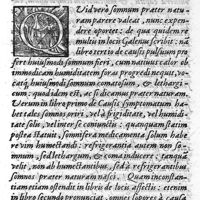 Vid verò somnum præter natu
ram parere valeat, nunc expen
dere oportet: de qua quidem re
multis in locis Galenus scribit: nã
libro tertio de causis pulsuum pro
fert huiusmodi somnum fieri, cum natiuus calor ob
immodicam humiditatem foras progredi nequit, vo
catq́ huiusmodi somnum comatosum, & lethargi
cum: quod idem est, ac si dicamus præter naturam.
Verum in libro primo de Causis symptomatum ha
bet tales somnos oriri, vel à frigiditate, vel humidi
tate solis, vel inuicem se coniunctis: quanquam statim
postea statuit, somnifera medicamenta solum habe
re vim humectandi: refrigerantia autem non som
num, sed lethargum, & coma inducere: tanquã
velit, non ab humectantibus, sed à refrigerantibus
somnos præter naturam nasci. Quam inconstan
tiam etiam ostendit in libris de locis affectis: etenim
in libro secundo pronunciat, omnes sopores à causa